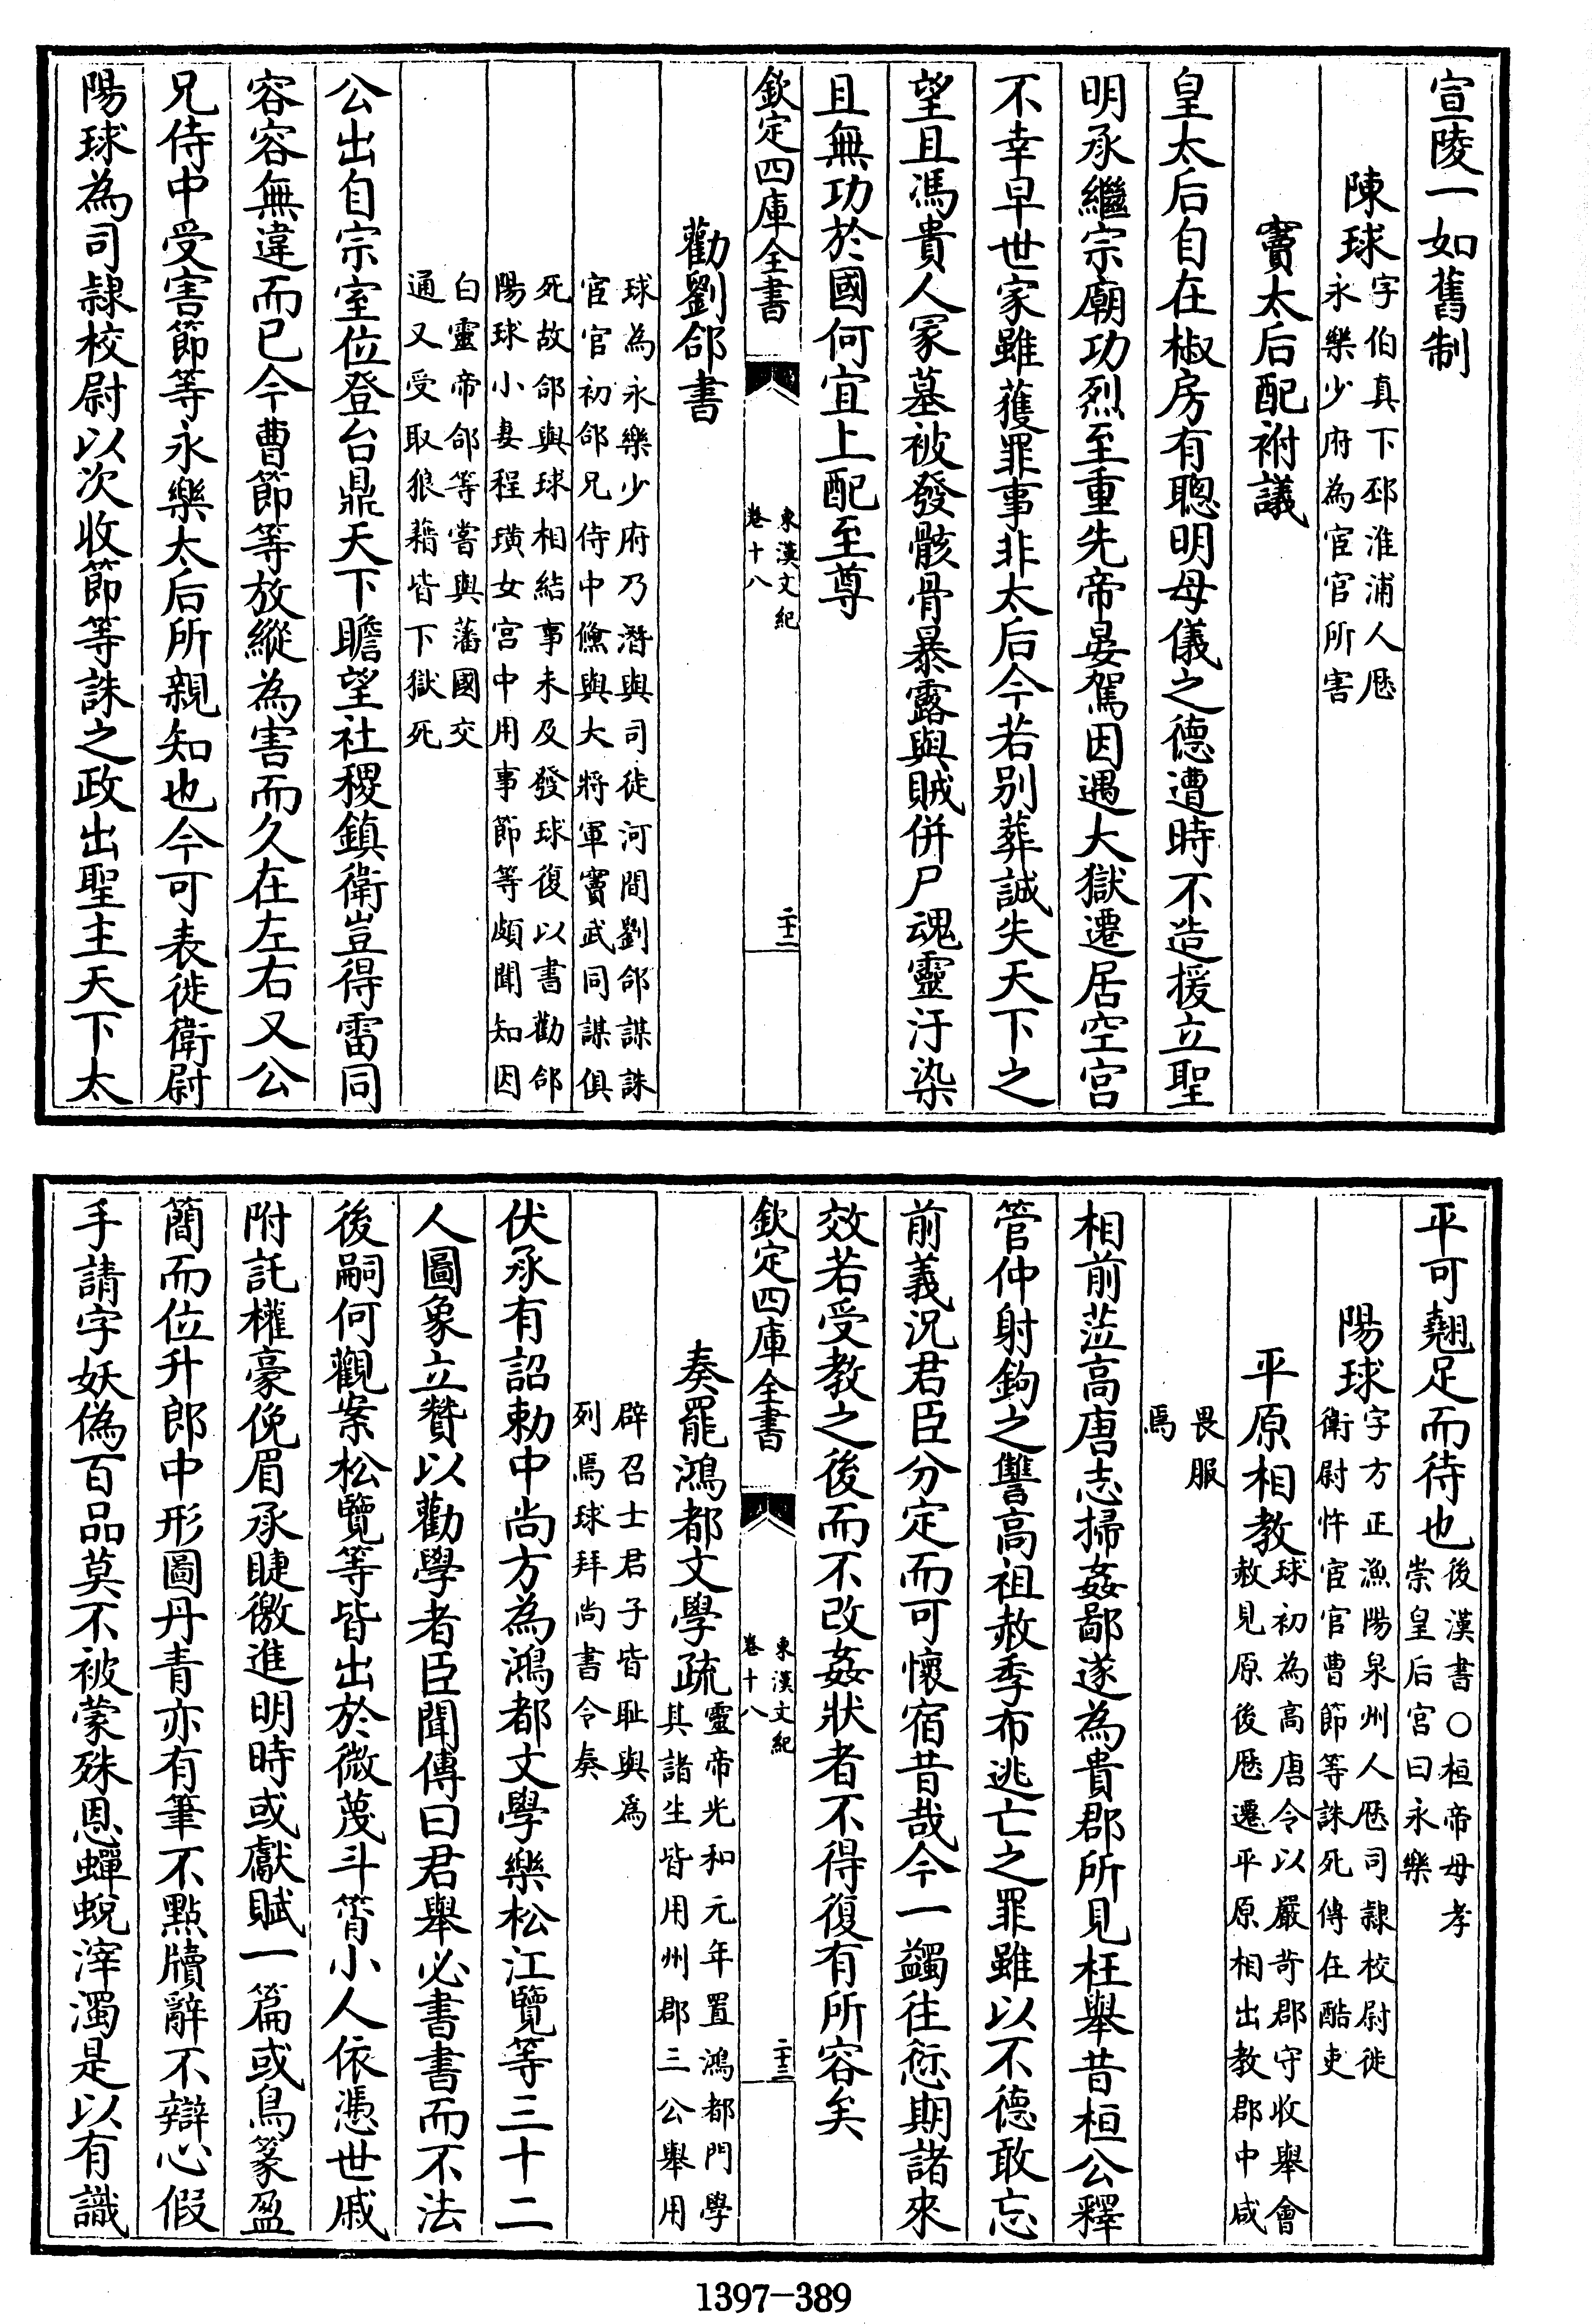 宣陵一如舊制
陳球字伯真下邳淮浦人歴
永樂少府為宦官所害
竇太后配祔議
皇太后自在椒房有聰明母儀之德遭時不造援立聖
明承繼宗廟功烈至重先帝晏駕因遇大獄遷居空宮
不幸早世家雖獲罪事非太后今若别葬誠失天下之
望且馮貴人冢墓被發骸骨暴露與賊併尸魂靈汙染
且無功於國何宜上配至尊
欽定四庫全書
東漢文紀
卷十八
二十二
勸劉郃書
球為永樂少府乃潛與司徒河間劉郃謀誅
宦官初郃兄侍中儵與大將軍竇武同謀俱
死故郃與球相結事未及發球復以書勸郃
陽球小妻程璜女宫中用事節等頗聞知因
白靈帝郃等嘗與藩國交
通又受取狼藉皆下獄死
公出自宗室位登台鼎天下瞻望社稷鎮衛豈得雷同
容容無違而已今曹節等放縱為害而久在左右又公
兄侍中受害節等永樂太后所親知也今可表徙衛尉
陽球為司隸校尉以次收節等誅之政出聖主天下太
平可翹足而待也後漢書○桓帝母孝
崇皇后宫曰永樂
陽球字方正漁陽泉州人歴司隸校尉徙
衛尉忤宦官曹節等誅死傳在酷吏
平原相教球初為高唐令以嚴苛郡守收舉會
赦見原後歴遷平原相出教郡中咸
畏服
焉
相前涖高唐志掃姦鄙遂為貴郡所見枉舉昔桓公釋
管仲射鉤之讐高祖赦季布逃亡之罪雖以不德敢忘
前義況君臣分定而可懷宿昔哉今一蠲往愆期諸來
效若受教之後而不改姦狀者不得復有所容矣
欽定四庫全書
東漢文紀
卷十八
二十三
奏罷鴻都文學疏靈帝光和元年置鴻都門學
其諸生皆用州郡三公舉用
辟召士君子皆耻與為
列焉球拜尚書令奏
伏承有詔勅中尚方為鴻都文學樂松江覽等三十二
人圖象立贊以勸學者臣聞傳曰君舉必書書而不法
後嗣何觀案松覽等皆出於微蔑斗筲小人依憑世戚
附託權豪俛眉承睫徼進明時或獻賦一篇或鳥篆盈
簡而位升郎中形圖丹青亦有筆不點牘辭不辯心假
手請字妖偽百品莫不被蒙殊恩蟬蛻滓濁是以有識
1397-389